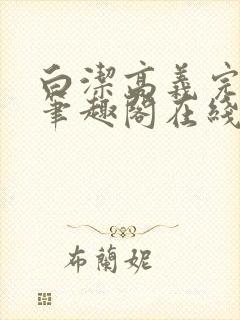 白潔高義完
筆趣閣在綫
布蘭妮